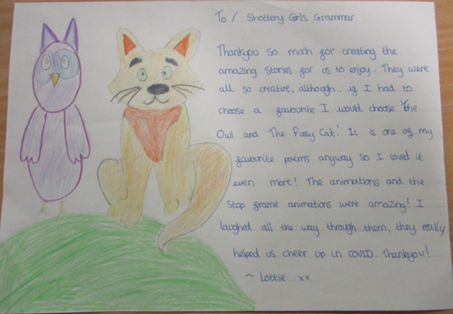 To / Shottery Girls Grammar.
Thankyou so much for creating the
amazing stories for us to enjoy. They were
all so creative, although, if I had to
choose a favourite I would choose 'The
Owl and The Pussy Cat.' It is one of my
favourite poems anyway so I loved it
even more! The animations and the
stop frame animations were amazing! I
laughed all the way through them, they really
helped us cheer up in COVID. Thankyou!
~ Lottie xx